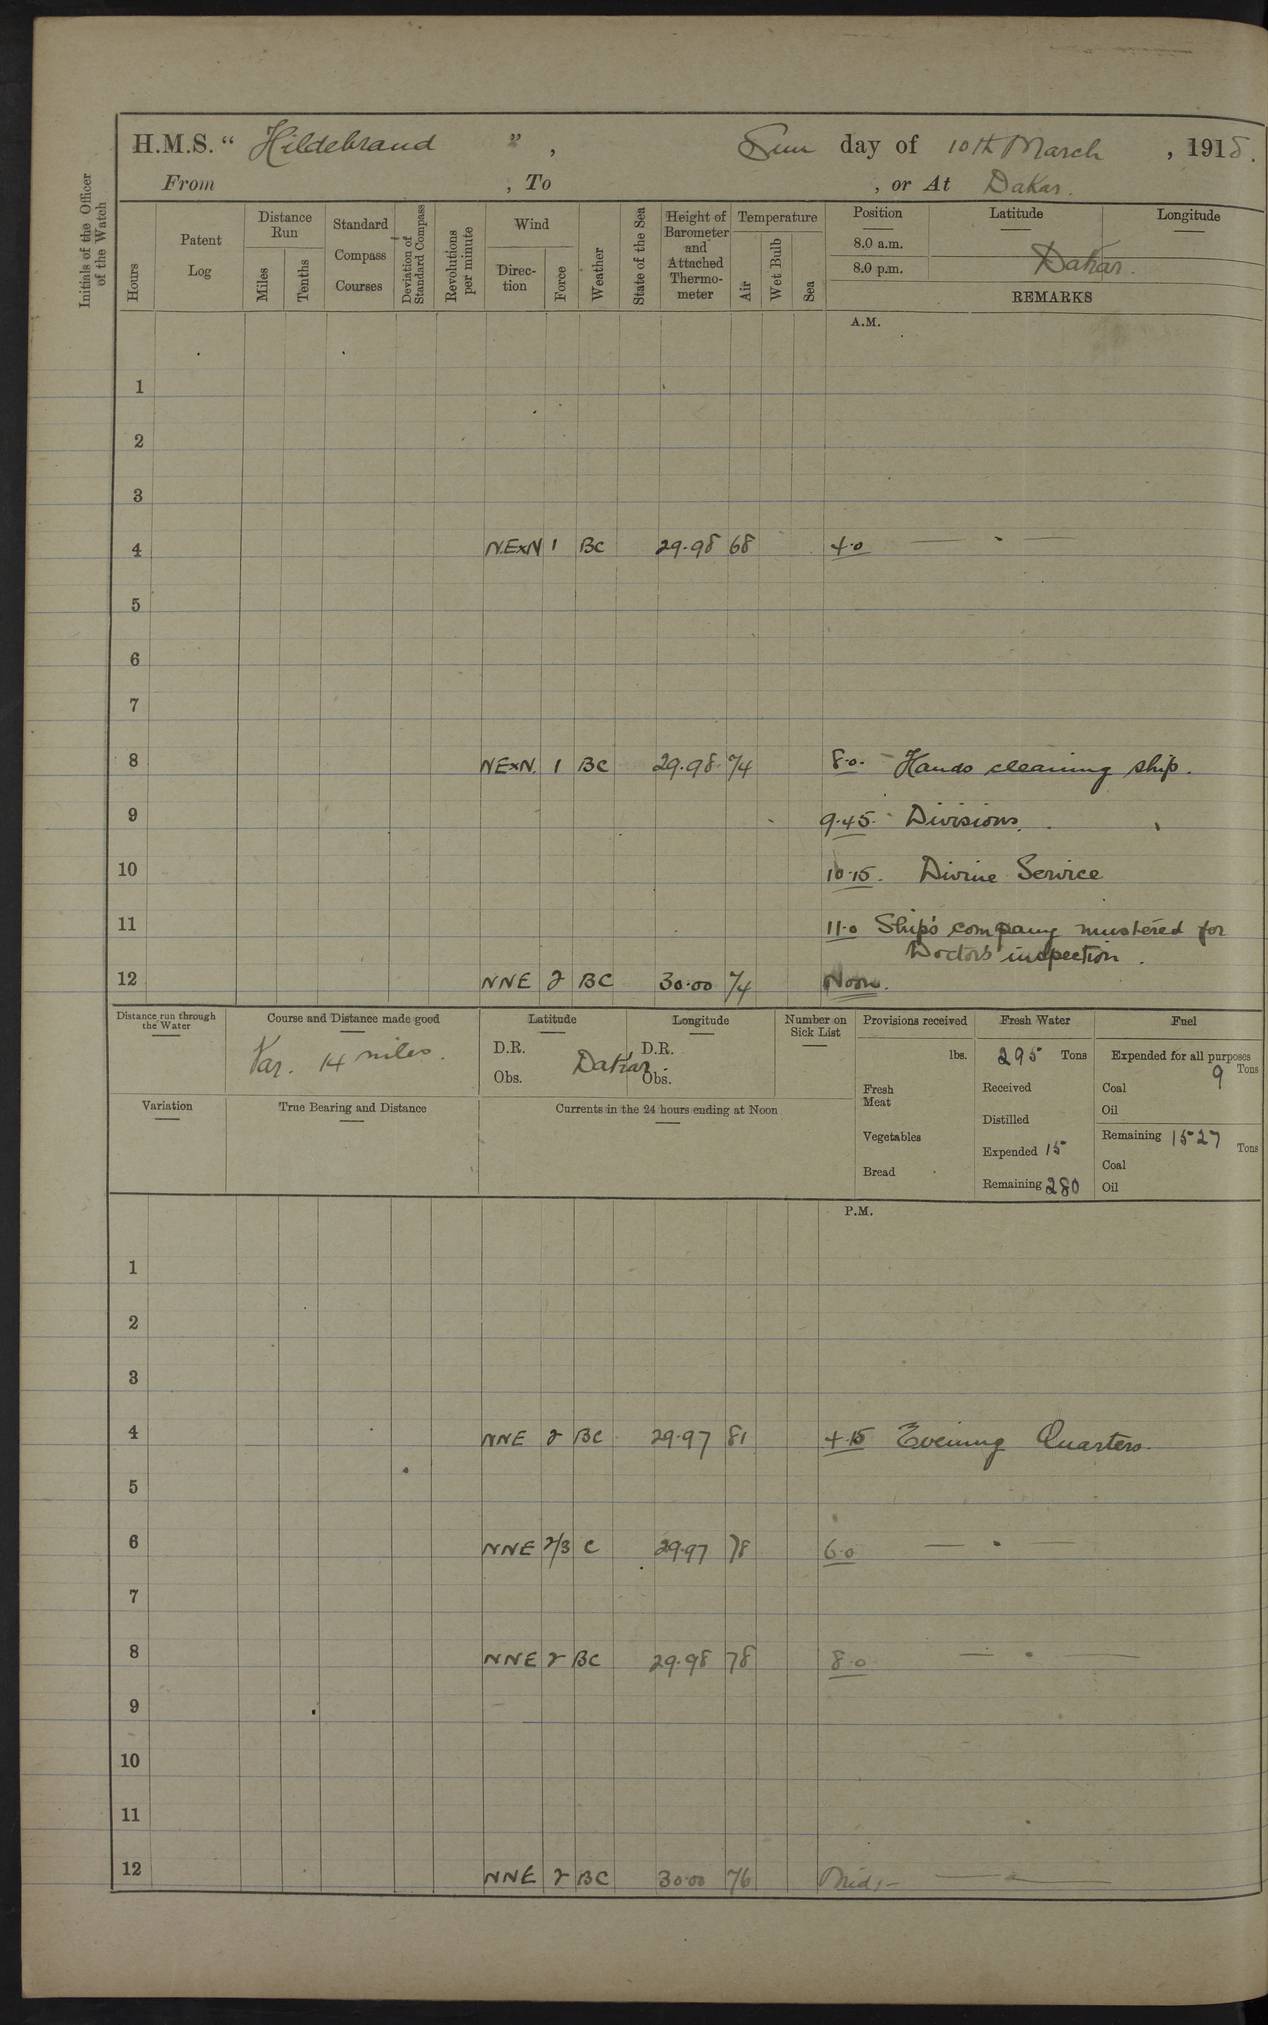 H.M.S. “ Hildebrand ” , Sun day of 10th March , 1918.
From , To , or At Dakar.
Initials of the Officer of the Watch
Hours
Patent Log
Distance Run
Miles
Tenths
Standard Compass Courses
Deviation of Standard Compass
Revolutions per minute
Wind
Direction
Force
Weather
State of the Sea
Height of Barometer and Attached Thermometer
Temperature
Air
Wet Bulb
Sea
Position Latitude Longitude
8.0 a.m.
8.0 p.m. Dakar.
REMARKS
A.M.
1
2
3
4 N.ExN 1 BC 29.98 68 4.0 — . —
5
6
7
8 NExN. 1 BC 29.98 74 8.0. Hands cleaning ship.
9 9.45. Divisions.
10 10.15. Divine Service
11 11.0 Ship's company mustered for
Doctors inspection.
12 NNE 2 BC 30.00 74 Noon.
Distance run through the Water
Course and Distance made good
Var. 14 miles.
Latitude
D.R.
Obs.
Dakar.
Longitude
D.R.
Obs.
Number on Sick List
Provisions received
lbs.
Fresh Meat
Vegetables
Bread
Fresh Water
295 Tons
Received
Distilled
Expended 15
Remaining 280
Fuel
Expended for all purposes
9 Tons
Coal
Oil
Remaining 1527 Tons
Coal
Oil
Variation
True Bearing and Distance
Currents in the 24 hours ending at Noon
P.M.
1
2
3
4 NNE 2 BC 29.97 81 4.15 Evening Quarters.
5
6 NNE 2/3 C 29.97 78 6.0 — . —
7
8 NNE 2 BC 29.98 78 8.0 — . —
9
10
11
12 NNE 2 BC 30.00 76 Mid: — . —